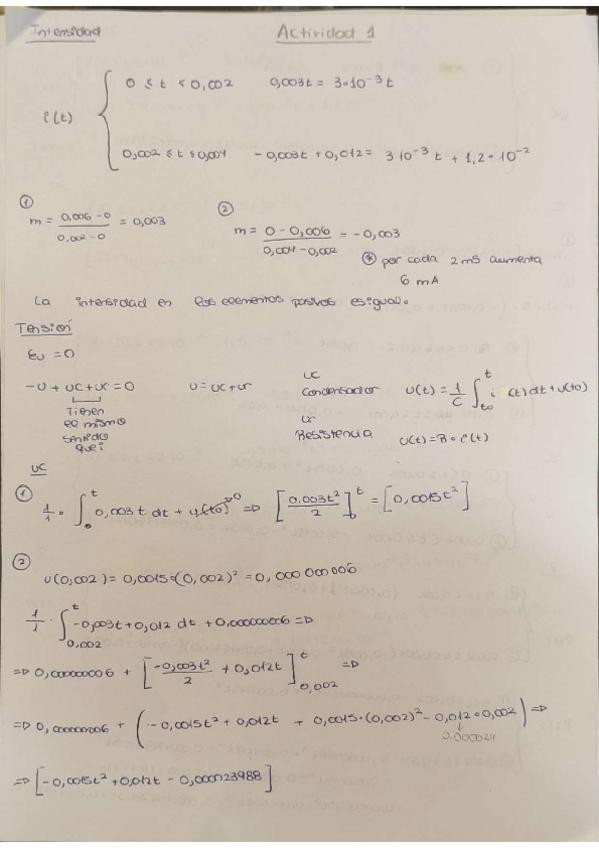 Intensidad Actividad 1
0 ≤ t < 0,002 0,003t = 3·10⁻³ t
i(t)
0,002 ≤ t ≤ 0,004 -0,003t + 0,012 = 3·10⁻³ t + 1,2·10⁻²
① m = (0,006 - 0)/(0,002 - 0) = 0,003
② m = (0 - 0,006)/(0,004 - 0,002) = -0,003
* por cada 2 ms aumenta
6 mA
La intensidad en los elementos pasivos es igual.
Tensión
Ɛu = 0
-u + uc + ur = 0 u = uc + ur
Tienen
el mismo
sentido
que i
uc
Condensador u(t) = 1/C ∫ₜ₀ᵗ i(t) dt + u(to)
ur
Resistencia u(t) = R · i(t)
uc
① 1/1 · ∫₀ᵗ 0,003t. dt + u(to)⁰ => [0,003t²/2]₀ᵗ = [0,0015t²]
②
u(0,002) = 0,0015·(0,002)² = 0,000000006
1/1 · ∫ -0,003t + 0,012 dt + 0,000000006 =>
t
0,002
=> 0,000000006 + [-0,003t²/2 + 0,012t] =>
t
0,002
=> 0,000000006 + (-0,0015t² + 0,012t + 0,0015·(0,002)² - 0,012·0,002) =>
0,000024
=> [-0,0015t² + 0,012t - 0,000023988]